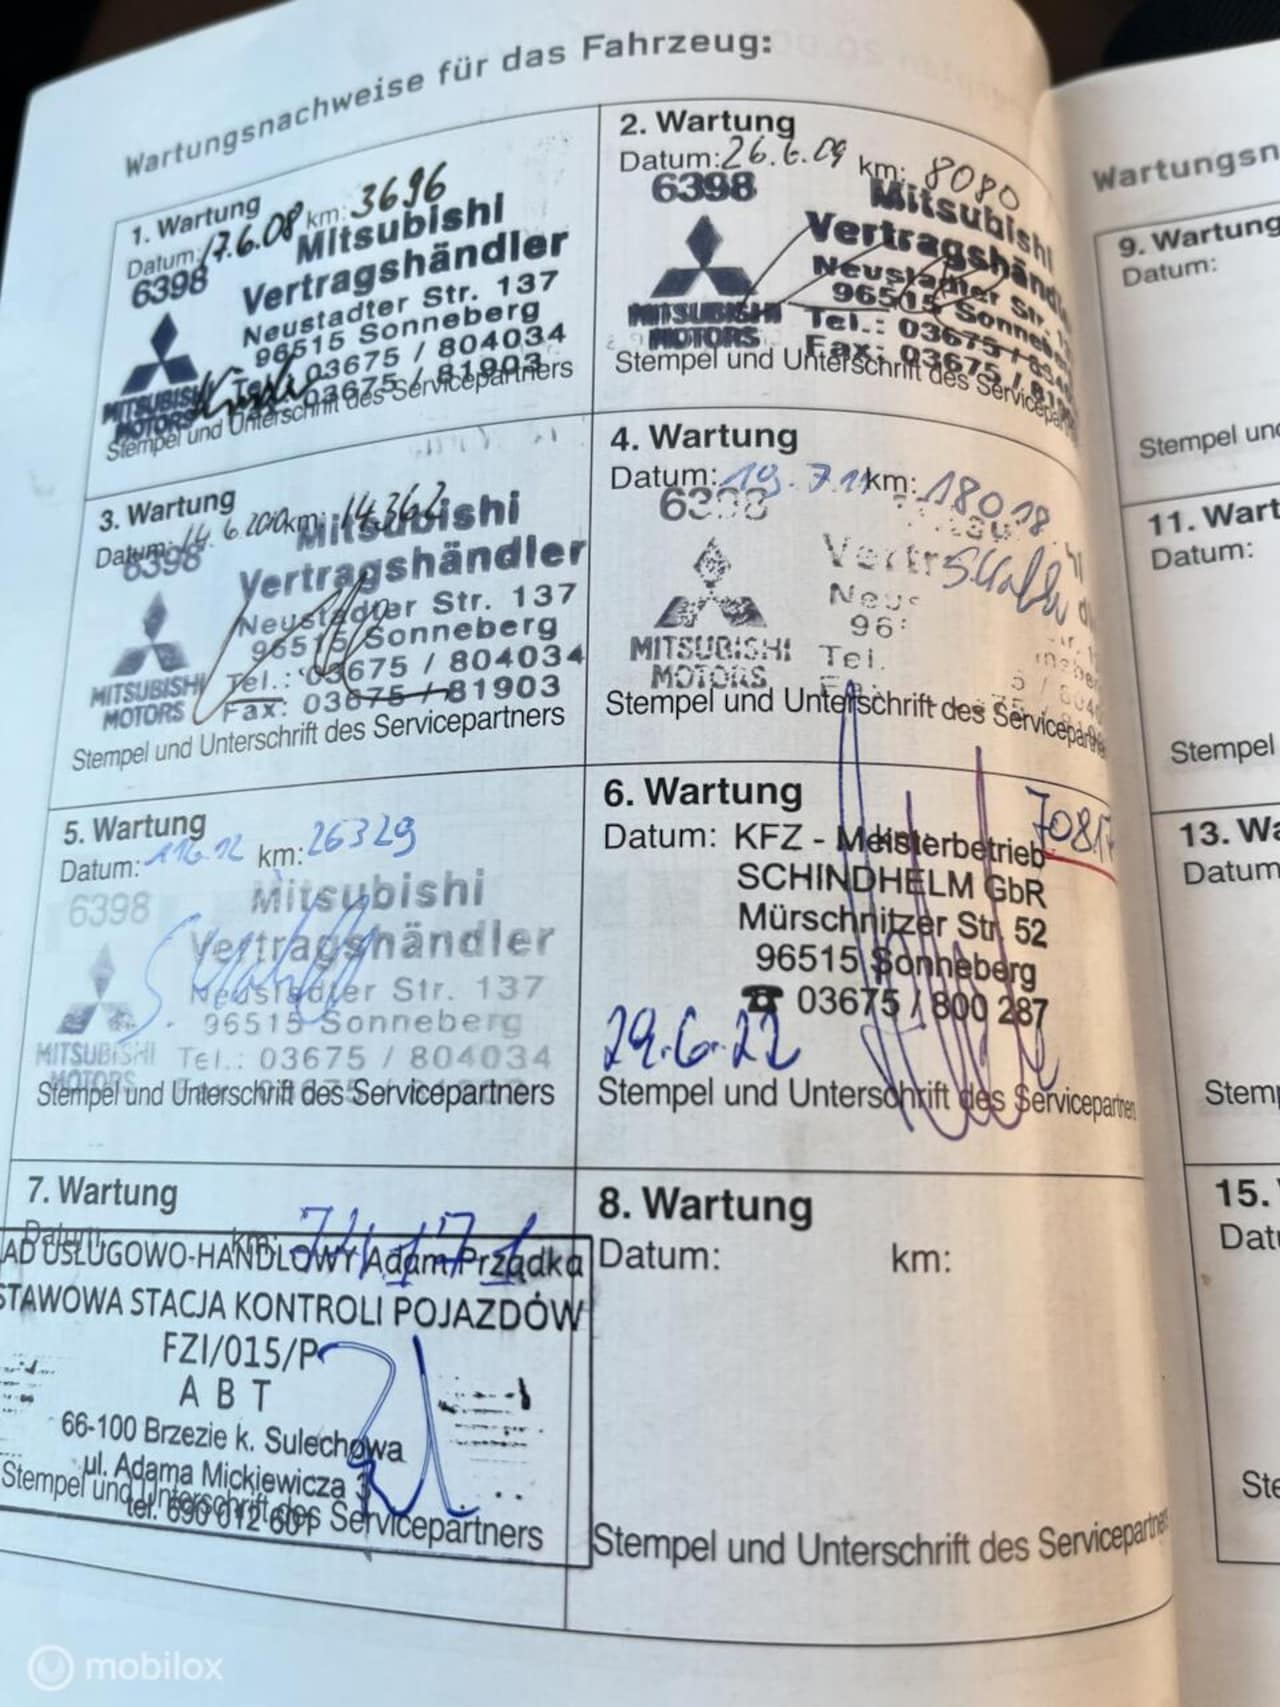 Wartungsnachweise für das Fahrzeug:
1. Wartung
Datum: 17.6.08 km: 3696
6398 Mitsubishi
Vertragshändler
Neustadter Str. 137
96515 Sonneberg
Tel.: 03675 / 804034
Fax: 03675 / 81903
MITSUBISHI
MOTORS
Stempel und Unterschrift des Servicepartners
2. Wartung
Datum: 26.6.09 km: 8080
6398 Mitsubishi
Vertragshändle
Neustadter Str. 1
96515 Sonneb
Tel.: 03675 / 804
Fax: 03675 / 819
MITSUBISHI
MOTORS
Stempel und Unterschrift des Servicepartn
3. Wartung
Datum: 14.6.20 km: 14362
6398 Mitsubishi
Vertragshändler
Neustadter Str. 137
96515 Sonneberg
Tel.: 03675 / 804034
Fax: 03675 / 81903
MITSUBISHI
MOTORS
Stempel und Unterschrift des Servicepartners
4. Wartung
Datum: 19.7.11 km: 18018
6398
Vertr
Neus
96
Tel.
MITSUBISHI
MOTORS
Stempel und Unterschrift des Servicepartne
5. Wartung
Datum: km: 26329
6398 Mitsubishi
Vertragshändler
Neustadter Str. 137
96515 Sonneberg
Tel.: 03675 / 804034
MITSUBISHI
MOTORS
Stempel und Unterschrift des Servicepartners
6. Wartung
7081
Datum: KFZ - Meisterbetrieb
SCHINDHELM GbR
Mürschnitzer Str. 52
96515 Sonneberg
☎ 03675 / 800 287
29.6.22
Stempel und Unterschrift des Servicepartners
7. Wartung
Datum: km:
AD USŁUGOWO-HANDLOWY Adam Prządka
STAWOWA STACJA KONTROLI POJAZDÓW
FZI/015/P
A B T
66-100 Brzezie k. Sulechowa
ul. Adama Mickiewicza 3
tel. 690 012 601
Stempel und Unterschrift des Servicepartners
8. Wartung
Datum: km:
Stempel und Unterschrift des Servicepartner
Wartungsn
9. Wartung
Datum:
Stempel und
11. Wart
Datum:
Stempel
13. Wa
Datum
Stemp
15.
Dat
Ste
mobilox